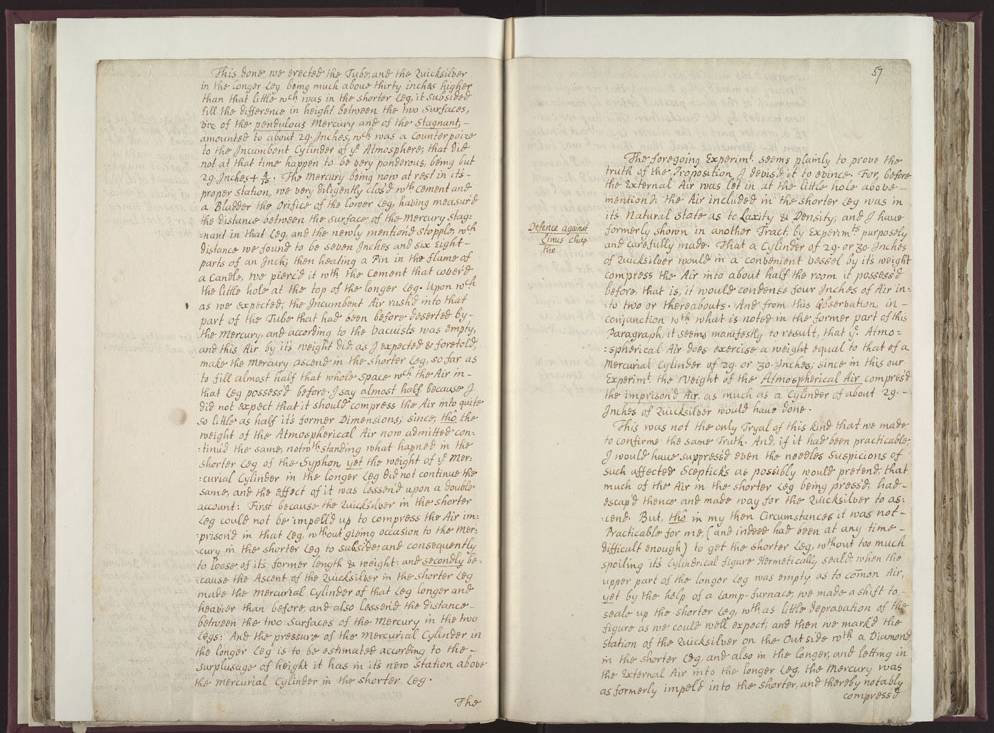 This done we erected the Tube, and the Quicksilver
in the longer Leg being much above thirty inches higher
than that little wch was in the shorter Leg, it subsided
till the difference in height between the two Surfaces,
viz of the pendulous Mercury and of the Stagnant, -
amounted to about 29 Inches, wch was a Counterpoize
to the Incumbent Cylinder of ye Atmosphere, that did
not at that time happen to be very ponderous, being but
29 Inches +
The Mercury being now at rest in its -
proper station, we very diligently clos'd wth Cement and
a Bladder the Orifice of the lower Leg, having measur'd
the distance between the surface of the Mercury stag=
=nant in that Leg, and the newly mention'd stopple, wch
distance we found to be seven Inches and six Eight-
parts of an Inch; then heating a Pin in the flame of
a Candle, we pierc'd it wth the Cement that cover'd
the little hole at the top of the longer Leg. Upon wch
as we expected, the Incumbent Air rush'd into that
part of the Tube that had been before deserted by-
the Mercury, and according to the Vacuists was empty,
and this Air by its weight did, as I expected & foretold
make the Mercury ascend in the shorter Leg, so far as
to fill almost half that whole space wch the Air in -
that Leg possess'd before. I say almost half because I
did not expect that it should compress the Air into quite
so little as half its former Dimensions; since, tho the
weight of the Atmospherical Air now admitted con=
=tinu'd the same, notwthstanding what hapned in the
shorter Leg of the Syphon, yet the weight of ye Mer=
=curial Cylinder in the longer Leg did not continue the
same, and the effect of it was lessen'd upon a double
account: First because the Quicksilver in the shorter
Leg could not be impell'd up to compress the Air im=
=prison'd in that Leg, wthout giving occasion to the Mer=
=cury in the shorter Leg to subside, and consequently
to loose of its former length & weight: and secondly be=
=cause the Ascent of the Quicksilver in the shorter Leg
made the Mercurial Cylinder of that Leg longer and
heavier than before, and also lessend the distance -
between the two Surfaces of the Mercury in the two
Legs: And the pressure of the Mercurial Cylinder in
the longer Leg is to be estimated according to the -
Surplusage of height it has in its new station above
the Mercurial Cylinder in the shorter Leg.
The
57
The foregoing Experimt. seems plainly to prove the
truth of the Proposition I devis'd it to evince. For, before
the External Air was let in at the little hole above -
mention'd, the Air included in the shorter Leg was in
its Natural State as to Laxity & Density; and I have
formerly shown in another Tract by Experimts purposely
and carefully made. That a Cylinder of 29. or 30. Inches
of Quicksilver would in a convenient vessel by its weight
compress the Air into about half the room it possess'd
before, that is, it would condense four Inches of Air in=
to two or thereabouts. And from this Observation, in -
conjunction wth what is noted in the former part of this
Paragraph, it seems manifestly to result, that ye Atmo=
=spherical Air does exercise a weight equal to that of a
Mercurial Cylinder of 29. or 30. Inches; since in this our
Experimt the Weight of the Atmospherical Air compress'd
the imprison'd Air, as much as a Cylinder of about 29 -
Inches of Quicksilver would have done.
Defence against
Linus Chap
the
This was not the only Tryal of this Kind that we made
to confirme the same Truth. And, if it had been practicable
I would have suppress'd even the needles Suspicions of
such affected Scepticks as possibly would pretend, that
much of the Air in the shorter Leg being press'd, had -
escap'd thence and made way for the Quicksilver to as=
=cend. But, tho in my then Circumstances it was not -
Practicable for me, (and indeed had been at any time -
difficult enough) to get the shorter Leg, wthout too much
spoiling its Cylindrical figure Hermetically seal'd, when the
upper part of the longer Leg was empty as to com̄on Air,
yet by the help of a Lamp-furnace, we made a shift to -
seale up the shorter Leg, wth as little depravation of the
figure as we could well expect; and then we mark'd the
station of the Quicksilver on the Outside wth a Diamond
in the shorter Leg, and also in the longer, and letting in
the External Air into the longer Leg, the Mercury was
as formerly impell'd into the shorter, and thereby notably
compress'd